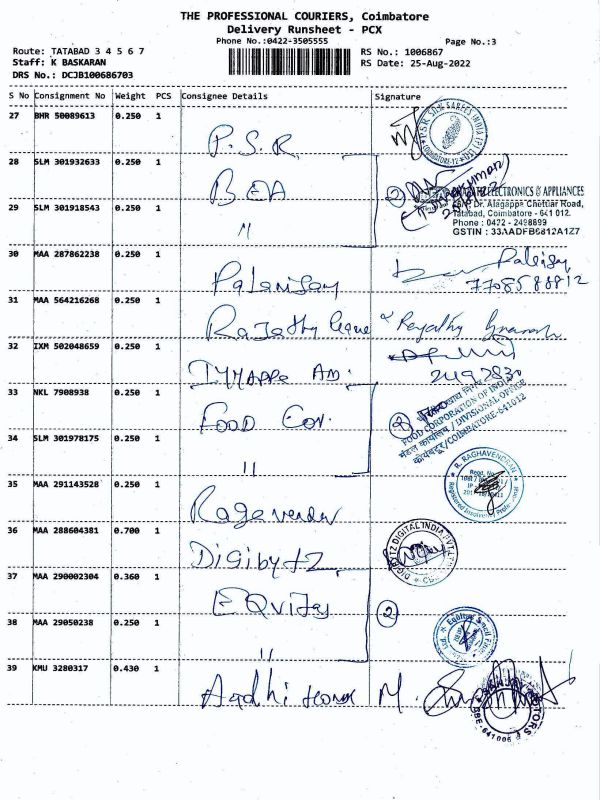 THE PROFESSIONAL COURIERS, Coimbatore
Delivery Runsheet - PCX
Phone No.:0422-3505555
Page No.:3
Route: TATABAD 3 4 5 6 7
Staff: K BASKARAN
DRS No.: DCJB100686703
RS No.: 1006867
RS Date: 25-Aug-2022
S No Consignment No Weight PCS Consignee Details Signature
27 BHR 50089613 0.250 1 P.S.R.
28 SLM 301932633 0.250 1 BEA 2
ELECTRONICS & APPLIANCES
Dr. Alagappa Chettiar Road,
Tatabad, Coimbatore - 641 012.
Phone : 0422 - 2498899
GSTIN : 33AADFB6812A1Z7
29 SLM 301918543 0.250 1 "
30 MAA 287862238 0.250 1 Palanisamy
7708588812
31 MAA 564216268 0.250 1
32 IXM 502048659 0.250 1
2492830
33 NKL 7908938 0.250 1 FOOD Cor. 2
FOOD CORPORATION OF INDIA
मंडल कार्यालय / DIVISIONAL OFFICE
COIMBATORE-641012
34 SLM 301978175 0.250 1 "
35 MAA 291143528 0.250 1
R. RAGHAVENDRAN
36 MAA 288604381 0.700 1 Digibytz
DIGIBYTZ DIGITAL INDIA PVT.
37 MAA 290002304 0.360 1 2
38 MAA 29050238 0.250 1 "
39 KMU 3280317 0.430 1 Aadhi